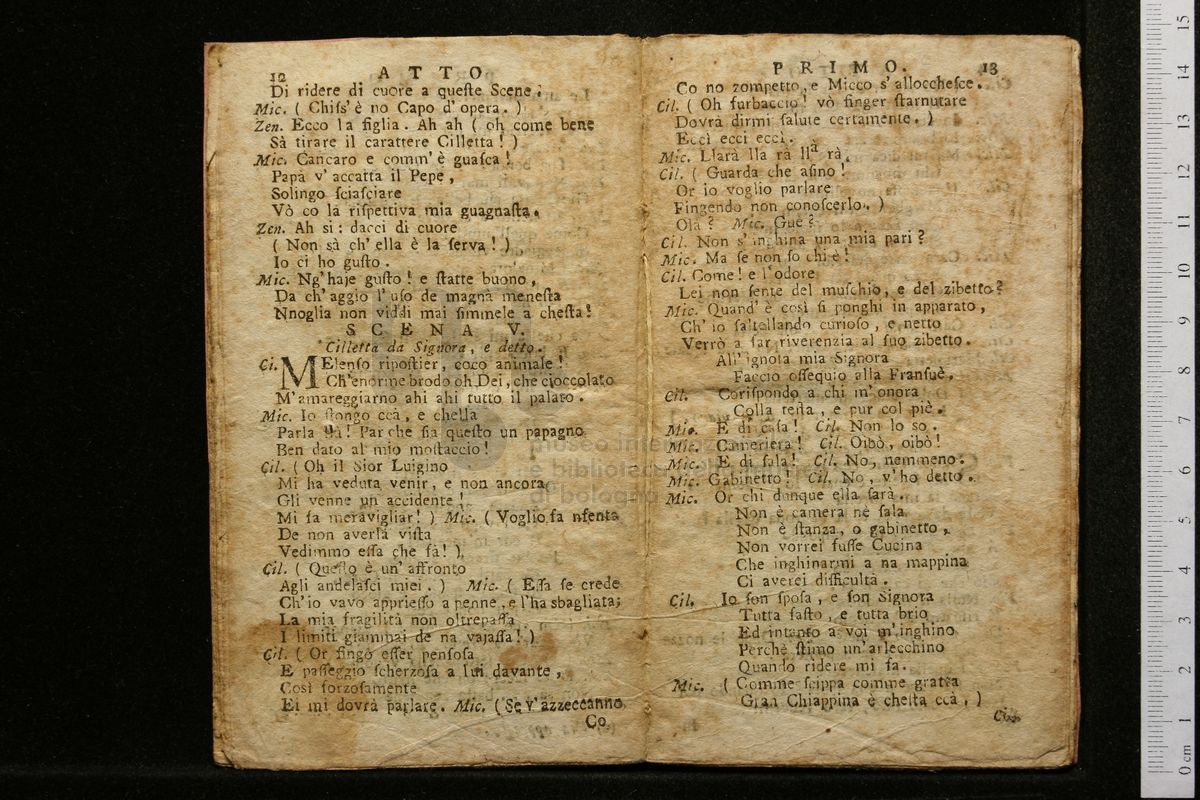 12 ATTO
Di ridere di cuore a queſte Scene!
Mic. ( Chiſs' è no Capo d' opera. )
Zen. Ecco la figlia. Ah ah ( oh come bene
Sà tirare il carattere Cilletta! )
Mic. Cancaro e comm' è guaſca!
Papà v' accatta il Pepe,
Solingo ſciaſciare
Vò co la riſpettiva mia guagnaſta.
Zen. Ah si: dacci di cuore
( Non sà ch' ella è la ſerva! )
Io ci ho guſto.
Mic. Ng' haje guſto! e ſtatte buono,
Da ch' aggio l' uſo de magnà meneſta
Nnoglia non viddi mai ſimmele a cheſta!
SCENA V.
Cilletta da Signora, e detto.
Ci. MElenſo ripoſtier, coco animale!
Ch'enorme brodo oh Dei, che cioccolato
M'amareggiarno ahi ahi tutto il palato.
Mic. Io ſtongo ccà, e chella
Parla llà! Par che ſia queſto un papagno
Ben dato al mio moſtaccio!
Cil. ( Oh il Sior Luigino
Mi ha veduta venir, e non ancora
Gli venne un accidente!
Mi fa meravigliar! ) Mic. ( Voglio fa nfenta
De non averla viſta
Vedimmo eſſa che fa! )
Cil. ( Queſto è un' affronto
Agli andelaſci miei. ) Mic. ( Eſſa ſe crede
Ch'io vavo apprieſſo a penne, e l'ha sbagliata;
La mia fragilità non oltrepaſſa
I limiti giammai de na vajaſſa! )
Cil. ( Or fingo eſſer penſoſa
E paſſeggio ſcherzoſa a lui davante,
Così forzoſamente
Ei mi dovrà parlare. Mic. ( Se v' azzeccanno
Co
PRIMO. 13
Co no zompetto, e Micco s' alloccheſce.
Cil. ( Oh furbaccio! vò finger ſtarnutare
Dovrà dirmi ſalute certamente. )
Eccì ecci eccì.
Mic. Llarà lla rà lla rà,
Cil. ( Guarda che aſino!
Or io voglio parlare
Fingendo non conoſcerlo. )
Olà? Mic. Guè?
Cil. Non s' inghina una mia pari?
Mic. Ma ſe non ſo chi è!
Cil. Come! e l' odore
Lei non ſente del muſchio, e del zibetto?
Mic. Quand' è così ſi ponghi in apparato,
Ch' io ſaltellando curioſo, e netto
Verrò a far riverenzia al ſuo zibetto.
All' ignota mia Signora
Faccio oſſequio alla Franſuè.
Cil. Coriſpondo a chi m' onora
Colla teſta, e pur col piè.
Mic. E di caſa! Cil. Non lo so.
Mic. Cameriera! Cil. Oibò, oibò!
Mic. E di ſala! Cil. No, nemmeno.
Mic. Gabinetto! Cil. No, v' ho detto.
Mic. Or chi dunque ella ſarà.
Non è camera nè ſala
Non è ſtanza, o gabinetto,
Non vorrei fuſſe Cucina
Che inghinarmi a na mappina
Ci averei difficultà.
Cil. Io ſon ſpoſa, e ſon Signora
Tutta faſto, e tutta brio
Ed intanto a voi m' inghino
Perchè ſtimo un' arlecchino
Quando ridere mi fa.
Mic. ( Comme ſcippa comme gratta
Gran Chiappina è cheſta ccà, )
Cil.
museo internaz
e biblioteca della musica
di bologna
15
14
13
12
11
10
9
8
7
6
5
4
3
2
1
0 cm